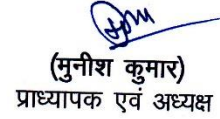 (मुनीश कुमार)
प्राध्यापक एवं अध्यक्ष